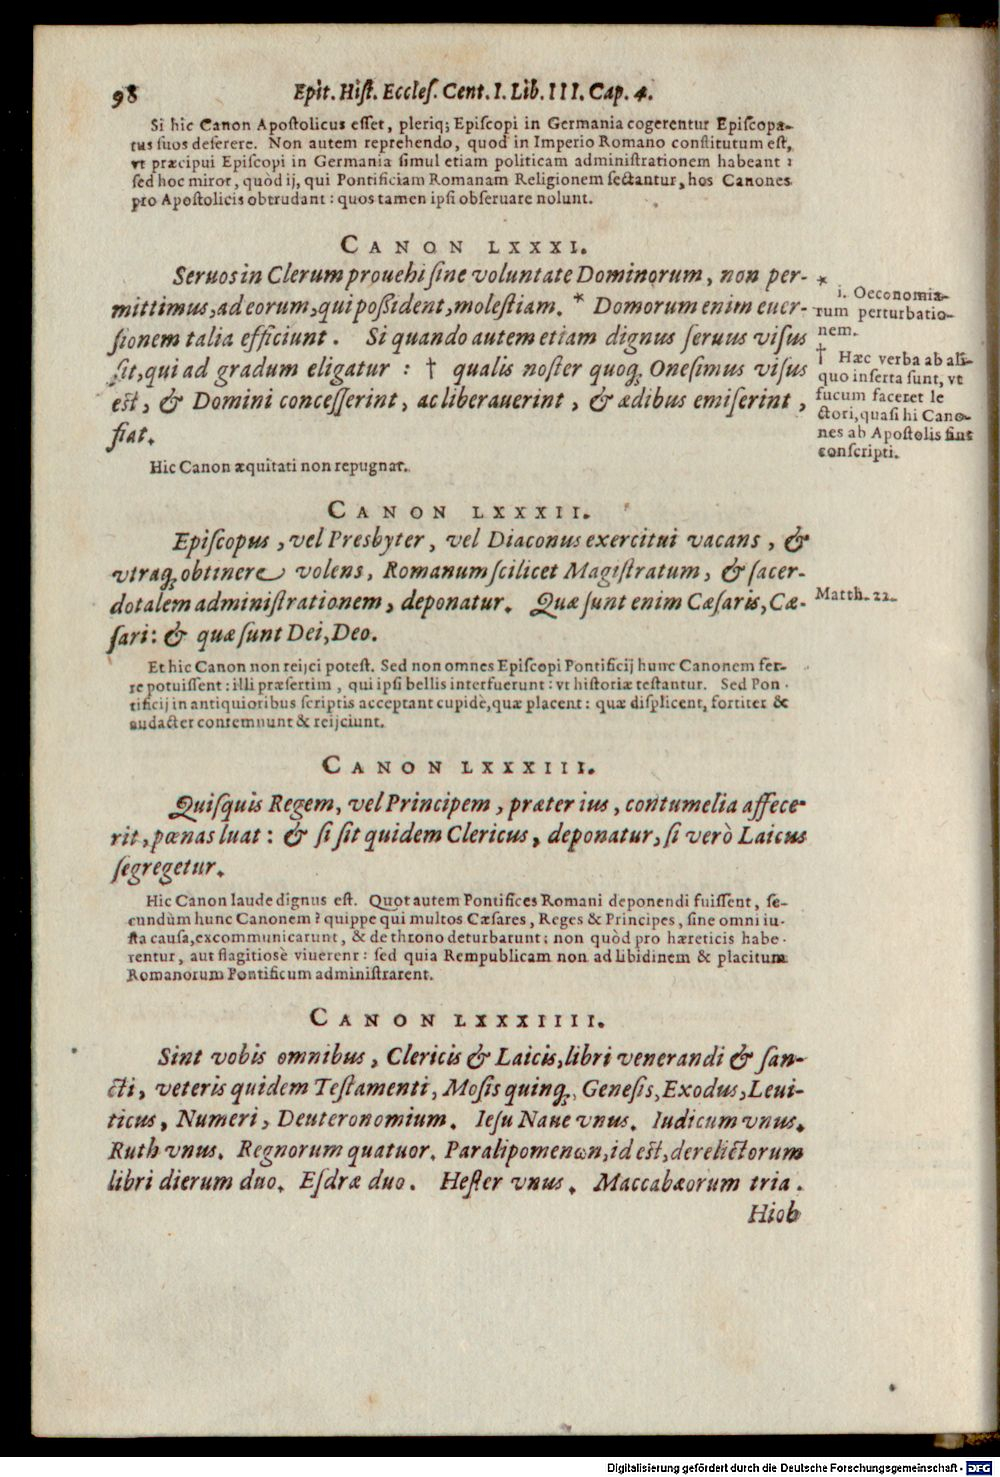 98 Epit. Hist. Eccles. Cent. I. Lib. III. Cap. 4.
Si hic Canon Apostolicus esset, pleriq; Episcopi in Germania cogerentur Episcopa-
tus suos deserere. Non autem reprehendo, quod in Imperio Romano constitutum est,
vt præcipui Episcopi in Germania simul etiam politicam administrationem habeant:
sed hoc miror, quòd ij, qui Pontificiam Romanam Religionem sectantur, hos Canones
pro Apostolicis obtrudant: quos tamen ipsi obseruare nolunt.
CANON LXXXI.
Seruos in Clerum prouehi sine voluntate Dominorum, non per-
mittimus, ad eorum, qui poßident, molestiam. * Domorum enim euer-
sionem talia efficiunt. Si quando autem etiam dignus seruus visus
sit, qui ad gradum eligatur: † qualis noster quoq; Onesimus visus
est, & Domini concesserint, ac liberauerint, & ædibus emiserint,
fiat.
*
i. Oeconomia-
rum perturbatio-
nem.
† Hæc verba ab ali-
quo inserta sunt, vt
fucum faceret le
ctori, quasi hi Cano-
nes ab Apostolis sint
conscripti.
Hic Canon æquitati non repugnat.
CANON LXXXII.
Episcopus, vel Presbyter, vel Diaconus exercitui vacans, &
vtraq; obtinere volens, Romanum scilicet Magistratum, & sacer-
dotalem administrationem, deponatur. Quæ sunt enim Cæsaris, Cæ-
sari: & quæ sunt Dei, Deo.
Matth. 22.
Et hic Canon non reijci potest. Sed non omnes Episcopi Pontificij hunc Canonem fer-
re potuissent: illi præsertim, qui ipsi bellis interfuerunt: vt historiæ testantur. Sed Pon-
tificij in antiquioribus scriptis acceptant cupidè, quæ placent: quæ displicent, fortiter &
audacter contemnunt & reijciunt.
CANON LXXXIII.
Quisquis Regem, vel Principem, præter ius, contumelia affece-
rit, pœnas luat: & si sit quidem Clericus, deponatur, si verò Laicus
segregetur.
Hic Canon laude dignus est. Quot autem Pontifices Romani deponendi fuissent, se-
cundùm hunc Canonem? quippe qui multos Cæsares, Reges & Principes, sine omni iu-
sta causa, excommunicarunt, & de throno deturbarunt: non quòd pro hæreticis habe-
rentur, aut flagitiosè viuerent: sed quia Rempublicam non ad libidinem & placitum
Romanorum Pontificum administrarent.
CANON LXXXIIII.
Sint vobis omnibus, Clericis & Laicis, libri venerandi & san-
cti, veteris quidem Testamenti, Mosis quinq;, Genesis, Exodus, Leui-
ticus, Numeri, Deuteronomium. Iesu Naue vnus. Iudicum vnus.
Ruth vnus. Regnorum quatuor. Paralipomenωn, id est, derelictorum
libri dierum duo. Esdræ duo. Hester vnus. Maccabæorum tria.
Hiob
Digitalisierung gefördert durch die Deutsche Forschungsgemeinschaft - DFG